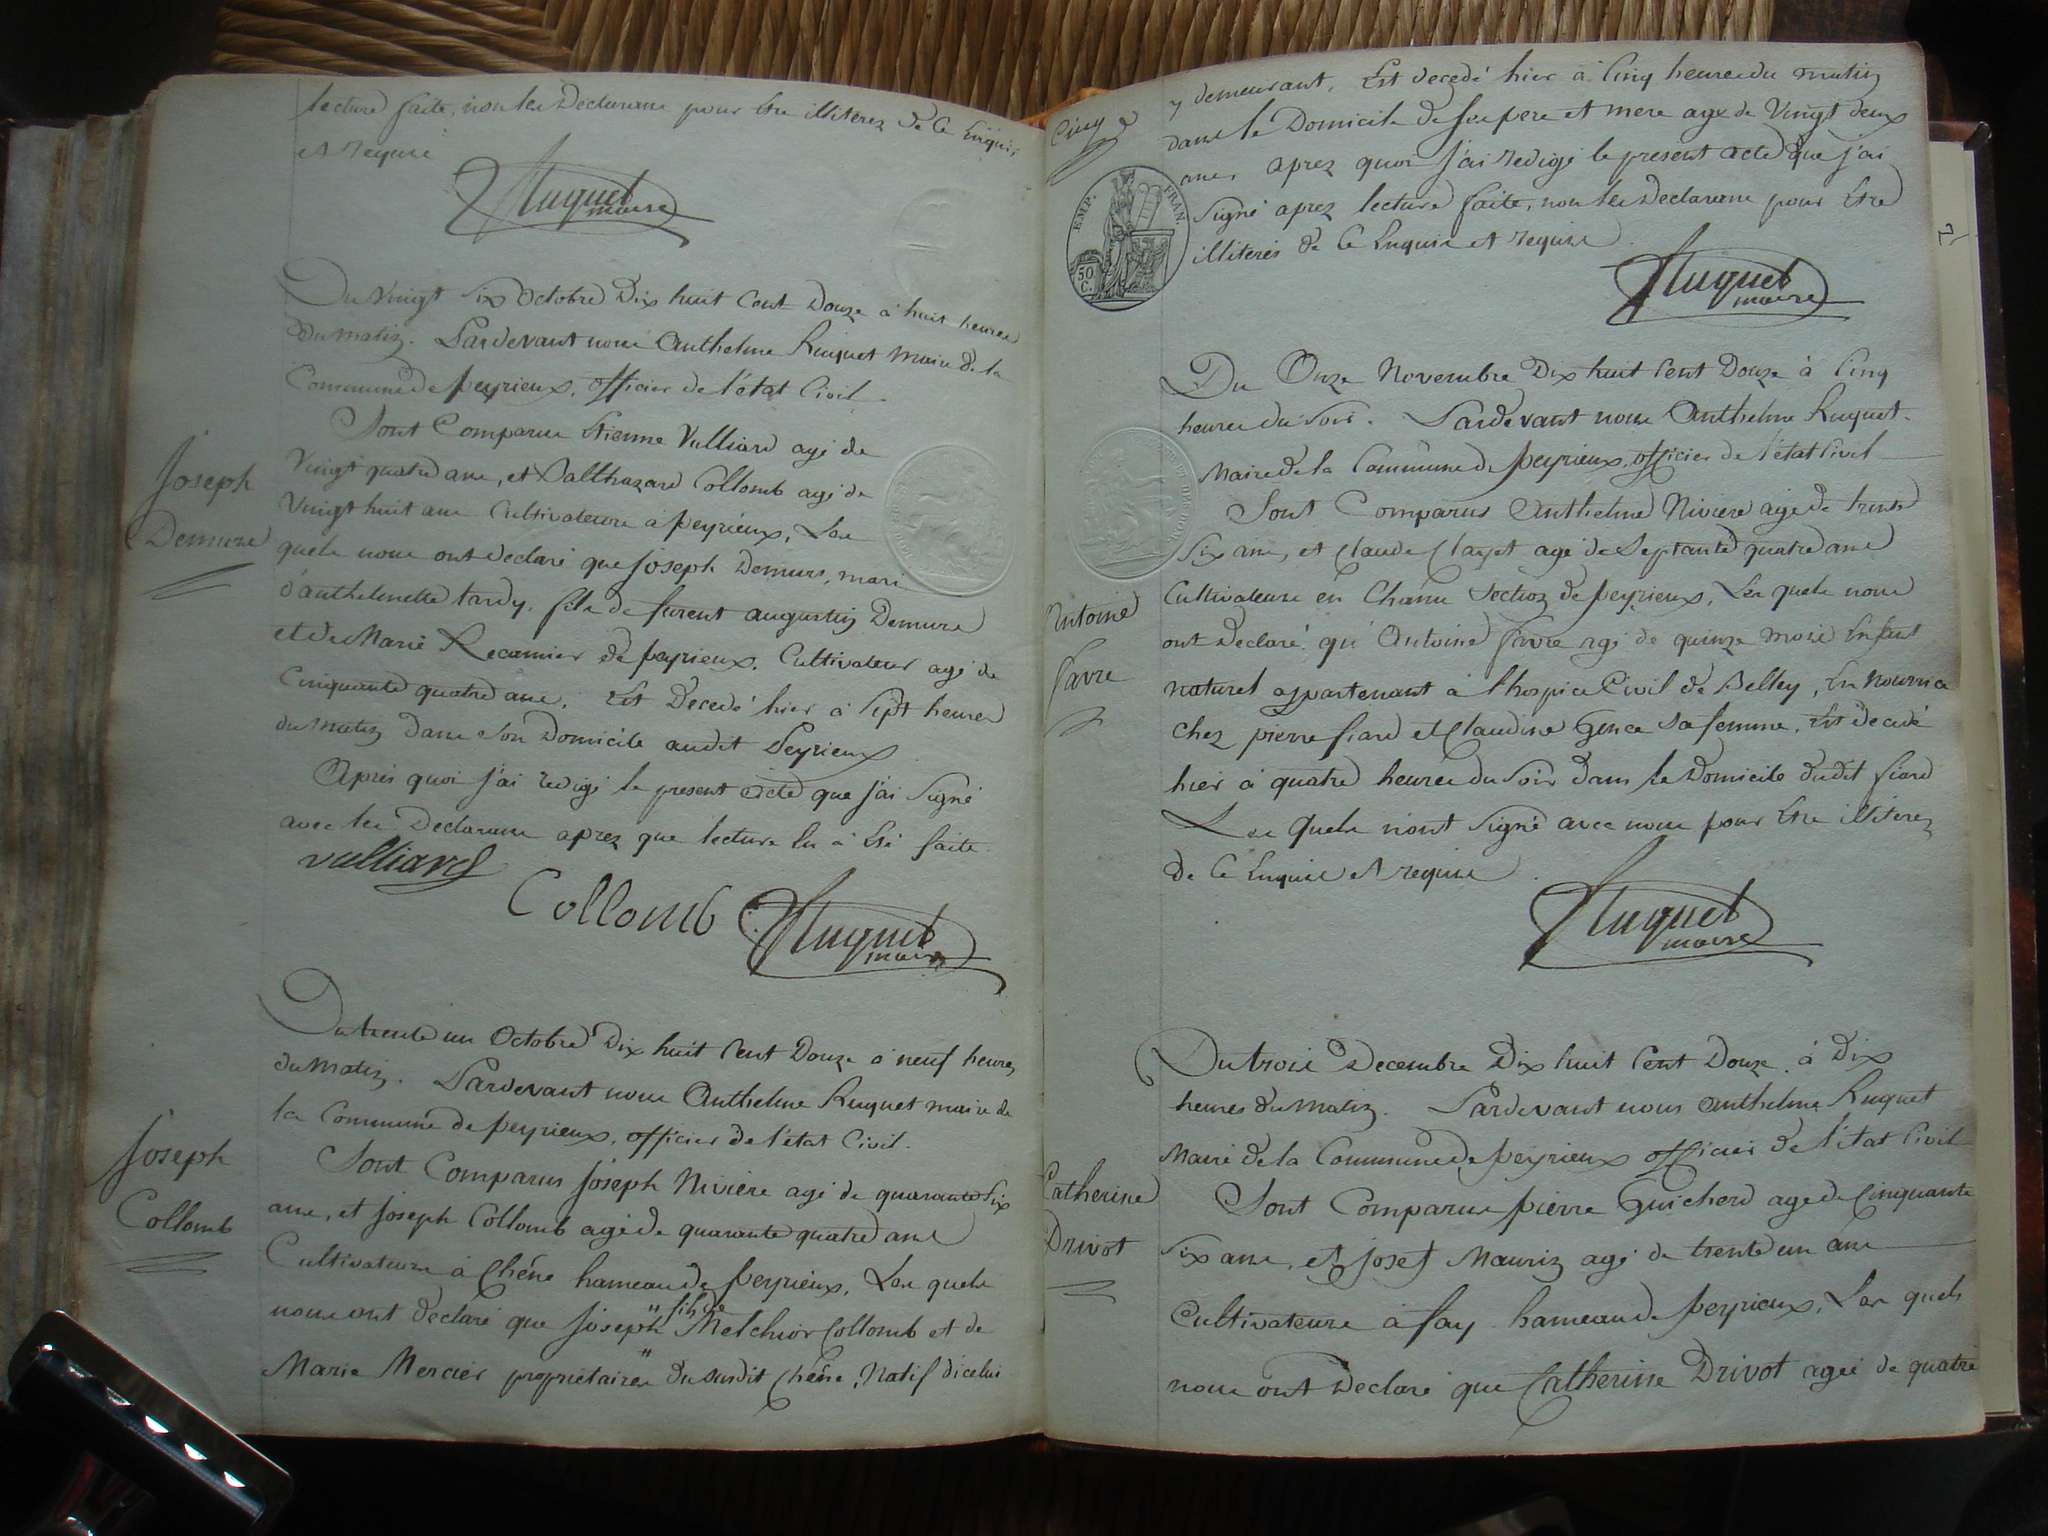 lecture faite, non les Declarans pour être illiterez de ce Enquis
et requis
Huguet
maire
Du Vingt Six Octobre Dix huit Cent Douze à huit heures
Du matin. Pardevant nous Anthelme Huguet Maire de la
Commune de Peyrieux, officier de l'état Civil.
Sont Comparus Etienne Vulliard agé de
Vingt quatre ans, et Balthazard Collomb agé de
Vingt huit ans Cultivateurs à Peyrieux, Les
quels nous ont declaré que Joseph Demurs, mari
d'anthelmette tardy, fils de furent augustin Demurs
et de Marie Recamier de peyrieux, Cultivateur agé de
Cinquante quatre ans, Est Decedé hier à Sept heures
du matin dans son Domicile audit Peyrieux
Après quoi j'ai redigé le present acte que j'ai Signé
avec les Declarans aprez que lecture en à Eté faite.
vulliard
Collomb
Huguet
maire
Joseph
Demurs
Du trente un Octobre Dix huit Cent Douze à neuf heures
du Matin. Pardevant nous Anthelme Huguet maire de
la Commune de peyrieux, officier de l'état Civil.
Sont Comparus Joseph Nivière agé de quarante Six
ans, et Joseph Collomb agé de quarante quatre ans
Cultivateurs à Chêne hameau de Peyrieux, Les quels
nous ont declaré que Joseph " fils de Melchior Collomb et de
Marie Mercier " propriétaires du susdit Chêne, Natif dicelui
Joseph
Collomb
y demeurant, Est decedé hier à Cinq heures du matin
dans le Domicile de ses pere et mere agé de Vingt deux
ans, aprez quoi j'ai redigé le present acte que j'ai
Signé aprez lecture faite, non les Declarans pour être
illiterés de ce Enquis et requis
Cinq
EMP. FRAN.
50
C.
Huguet
maire
Du Onze Novembre Dix huit Cent Douze à Cinq
heures du Soir. Pardevant nous Anthelme Huguet
Maire de la Commune de Peyrieux, officier de l'état Civil
Sont Comparus Anthelme Niviere agé de trente
Six ans, et Claude Clayet agé de Septante quatre ans
Cultivateurs en Chanu Section de Peyrieux, Les quels nous
ont declaré qu'Antoine favre agé de quinze mois Enfant
naturel appartenant à l'hospice Civil de Belley, En Nourrice
chez pierre fiard et Claudine Gence sa femme, Est decedé
hier à quatre heures du Soir dans le Domicile dudit fiard
Les quels n'ont Signé avec nous pour Etre illiterez
de ce Enquis et requis
Huguet
maire
Antoine
favre
Du trois Decembre Dix huit Cent Douze à Dix
heures du Matin. Pardevant nous Anthelme Huguet
Maire de la Commune de Peyrieux officier de l'état Civil
Sont Comparus pierre Guicherd agé de Cinquante
Six ans, et Josef Maurin agé de trente un ans
Cultivateurs à fay hameau de Peyrieux, Les quels
nous ont Declaré que Catherine Drivot agée de quatre
Catherine
Drivot